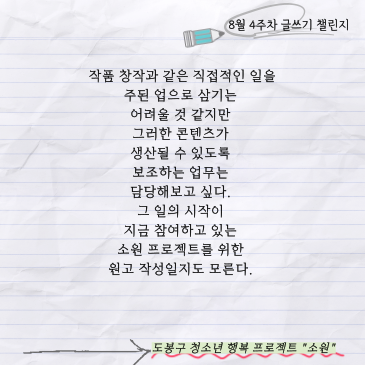 8월 4주차 글쓰기 챌린지
작품 창작과 같은 직접적인 일을
주된 업으로 삼기는
어려울 것 같지만
그러한 콘텐츠가
생산될 수 있도록
보조하는 업무는
담당해보고 싶다.
그 일의 시작이
지금 참여하고 있는
소원 프로젝트를 위한
원고 작성일지도 모른다.
도봉구 청소년 행복 프로젝트 "소원"